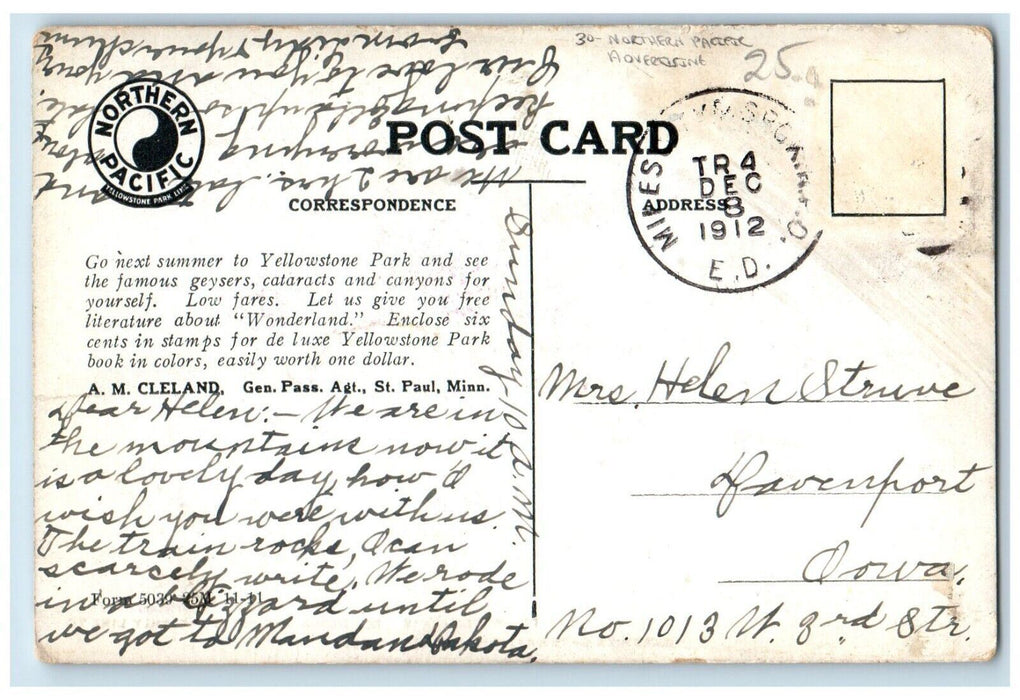 30- NORTHERN PACIFIC
ADVERTISING
25.
NORTHERN
PACIFIC
YELLOWSTONE PARK LINE
POST CARD
CORRESPONDENCE
ADDRESS
MILES
TR 4
DEC
8
1912
E.D.
Go next summer to Yellowstone Park and see
the famous geysers, cataracts and canyons for
yourself. Low fares. Let us give you free
literature about "Wonderland." Enclose six
cents in stamps for de luxe Yellowstone Park
book in colors, easily worth one dollar.
A. M. CLELAND, Gen. Pass. Agt., St. Paul, Minn.
Sunday 10 A.M.
Dear Helen:- We are in
the mountains now it
is a lovely day, how I
wish you were with us.
The train rocks, I can
scarcely write, We rode
in a blizzard until
we got to Mandan Dakota.
Form 5039 25M 11-11
We are 2 hrs. late and
keeping
love to you and
from
Mrs. Helen Struve
Davenport
Iowa.
No. 1013 W. 3rd Str.